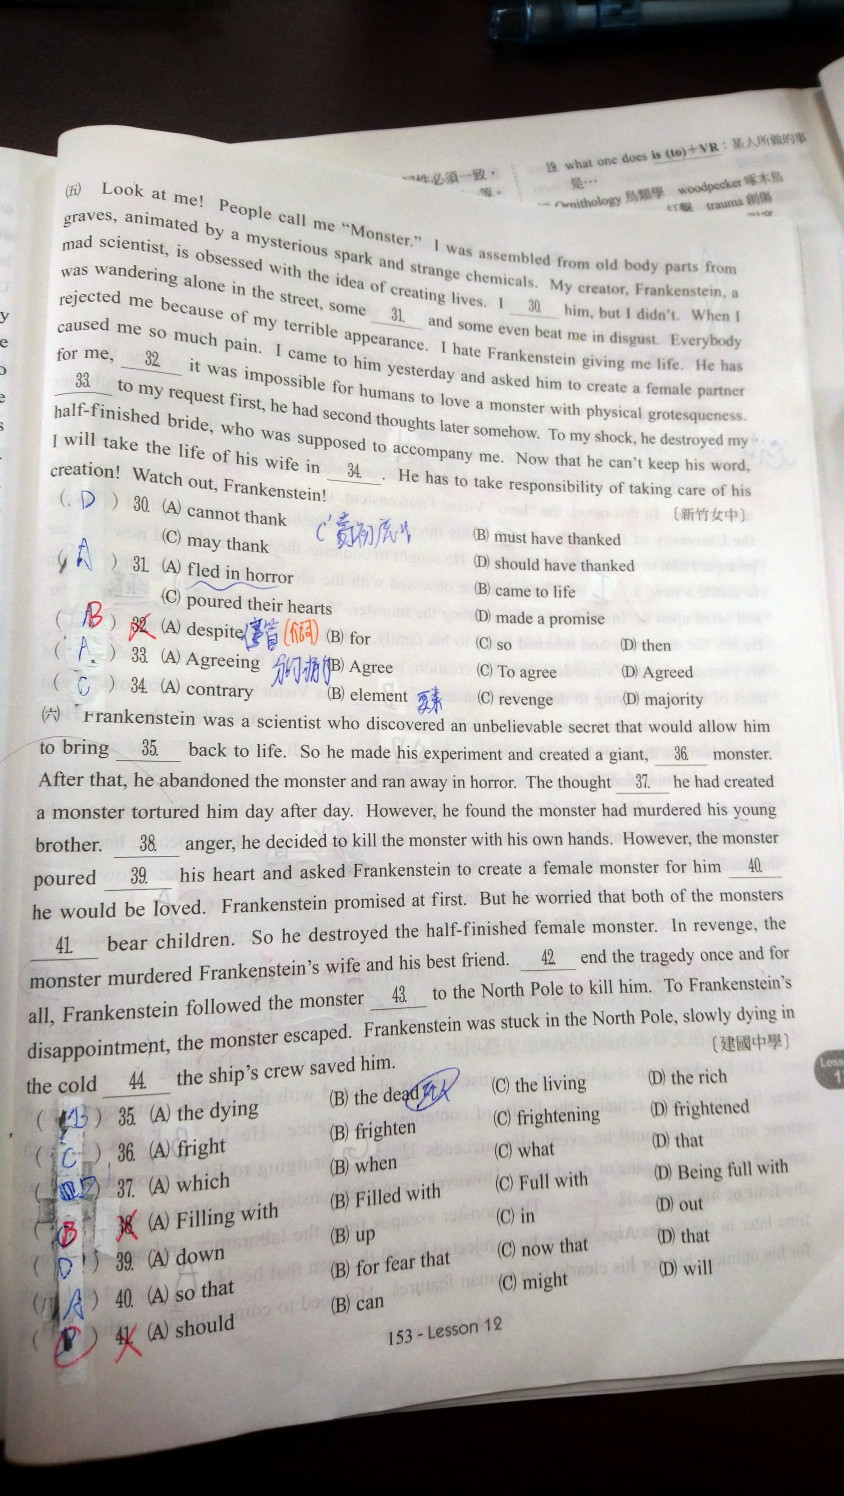 性必須一致，
等。
what one does is (to)+VR：某人所做的事
是…
Ornithology 鳥類學 woodpecker 啄木鳥
打擊 trauma 創傷
(五) Look at me! People call me “Monster.” I was assembled from old body parts from
graves, animated by a mysterious spark and strange chemicals. My creator, Frankenstein, a
mad scientist, is obsessed with the idea of creating lives. I 30. him, but I didn't. When I
was wandering alone in the street, some 31. and some even beat me in disgust. Everybody
rejected me because of my terrible appearance. I hate Frankenstein giving me life. He has
caused me so much pain. I came to him yesterday and asked him to create a female partner
for me, 32. it was impossible for humans to love a monster with physical grotesqueness.
33. to my request first, he had second thoughts later somehow. To my shock, he destroyed my
half-finished bride, who was supposed to accompany me. Now that he can't keep his word,
I will take the life of his wife in 34. . He has to take responsibility of taking care of his
creation! Watch out, Frankenstein!
〔新竹女中〕
( D ) 30. (A) cannot thank (B) must have thanked
(C) may thank (D) should have thanked
( A ) 31. (A) fled in horror (B) came to life
(C) poured their hearts (D) made a promise
( B ) 32. (A) despite 儘管 (介詞) (B) for (C) so (D) then
( A ) 33. (A) Agreeing (B) Agree (C) To agree (D) Agreed
( C ) 34. (A) contrary (B) element 要素 (C) revenge (D) majority
(六) Frankenstein was a scientist who discovered an unbelievable secret that would allow him
to bring 35. back to life. So he made his experiment and created a giant, 36. monster.
After that, he abandoned the monster and ran away in horror. The thought 37. he had created
a monster tortured him day after day. However, he found the monster had murdered his young
brother. 38. anger, he decided to kill the monster with his own hands. However, the monster
poured 39. his heart and asked Frankenstein to create a female monster for him 40.
he would be loved. Frankenstein promised at first. But he worried that both of the monsters
41. bear children. So he destroyed the half-finished female monster. In revenge, the
monster murdered Frankenstein's wife and his best friend. 42. end the tragedy once and for
all, Frankenstein followed the monster 43. to the North Pole to kill him. To Frankenstein's
disappointment, the monster escaped. Frankenstein was stuck in the North Pole, slowly dying in
the cold 44. the ship's crew saved him.
〔建國中學〕
( B ) 35. (A) the dying (B) the dead (C) the living (D) the rich
( C ) 36. (A) fright (B) frighten (C) frightening (D) frightened
( D ) 37. (A) which (B) when (C) what (D) that
( B ) 38. (A) Filling with (B) Filled with (C) Full with (D) Being full with
( D ) 39. (A) down (B) up (C) in (D) out
( A ) 40. (A) so that (B) for fear that (C) now that (D) that
( ) 41. (A) should (B) can (C) might (D) will
153 - Lesson 12